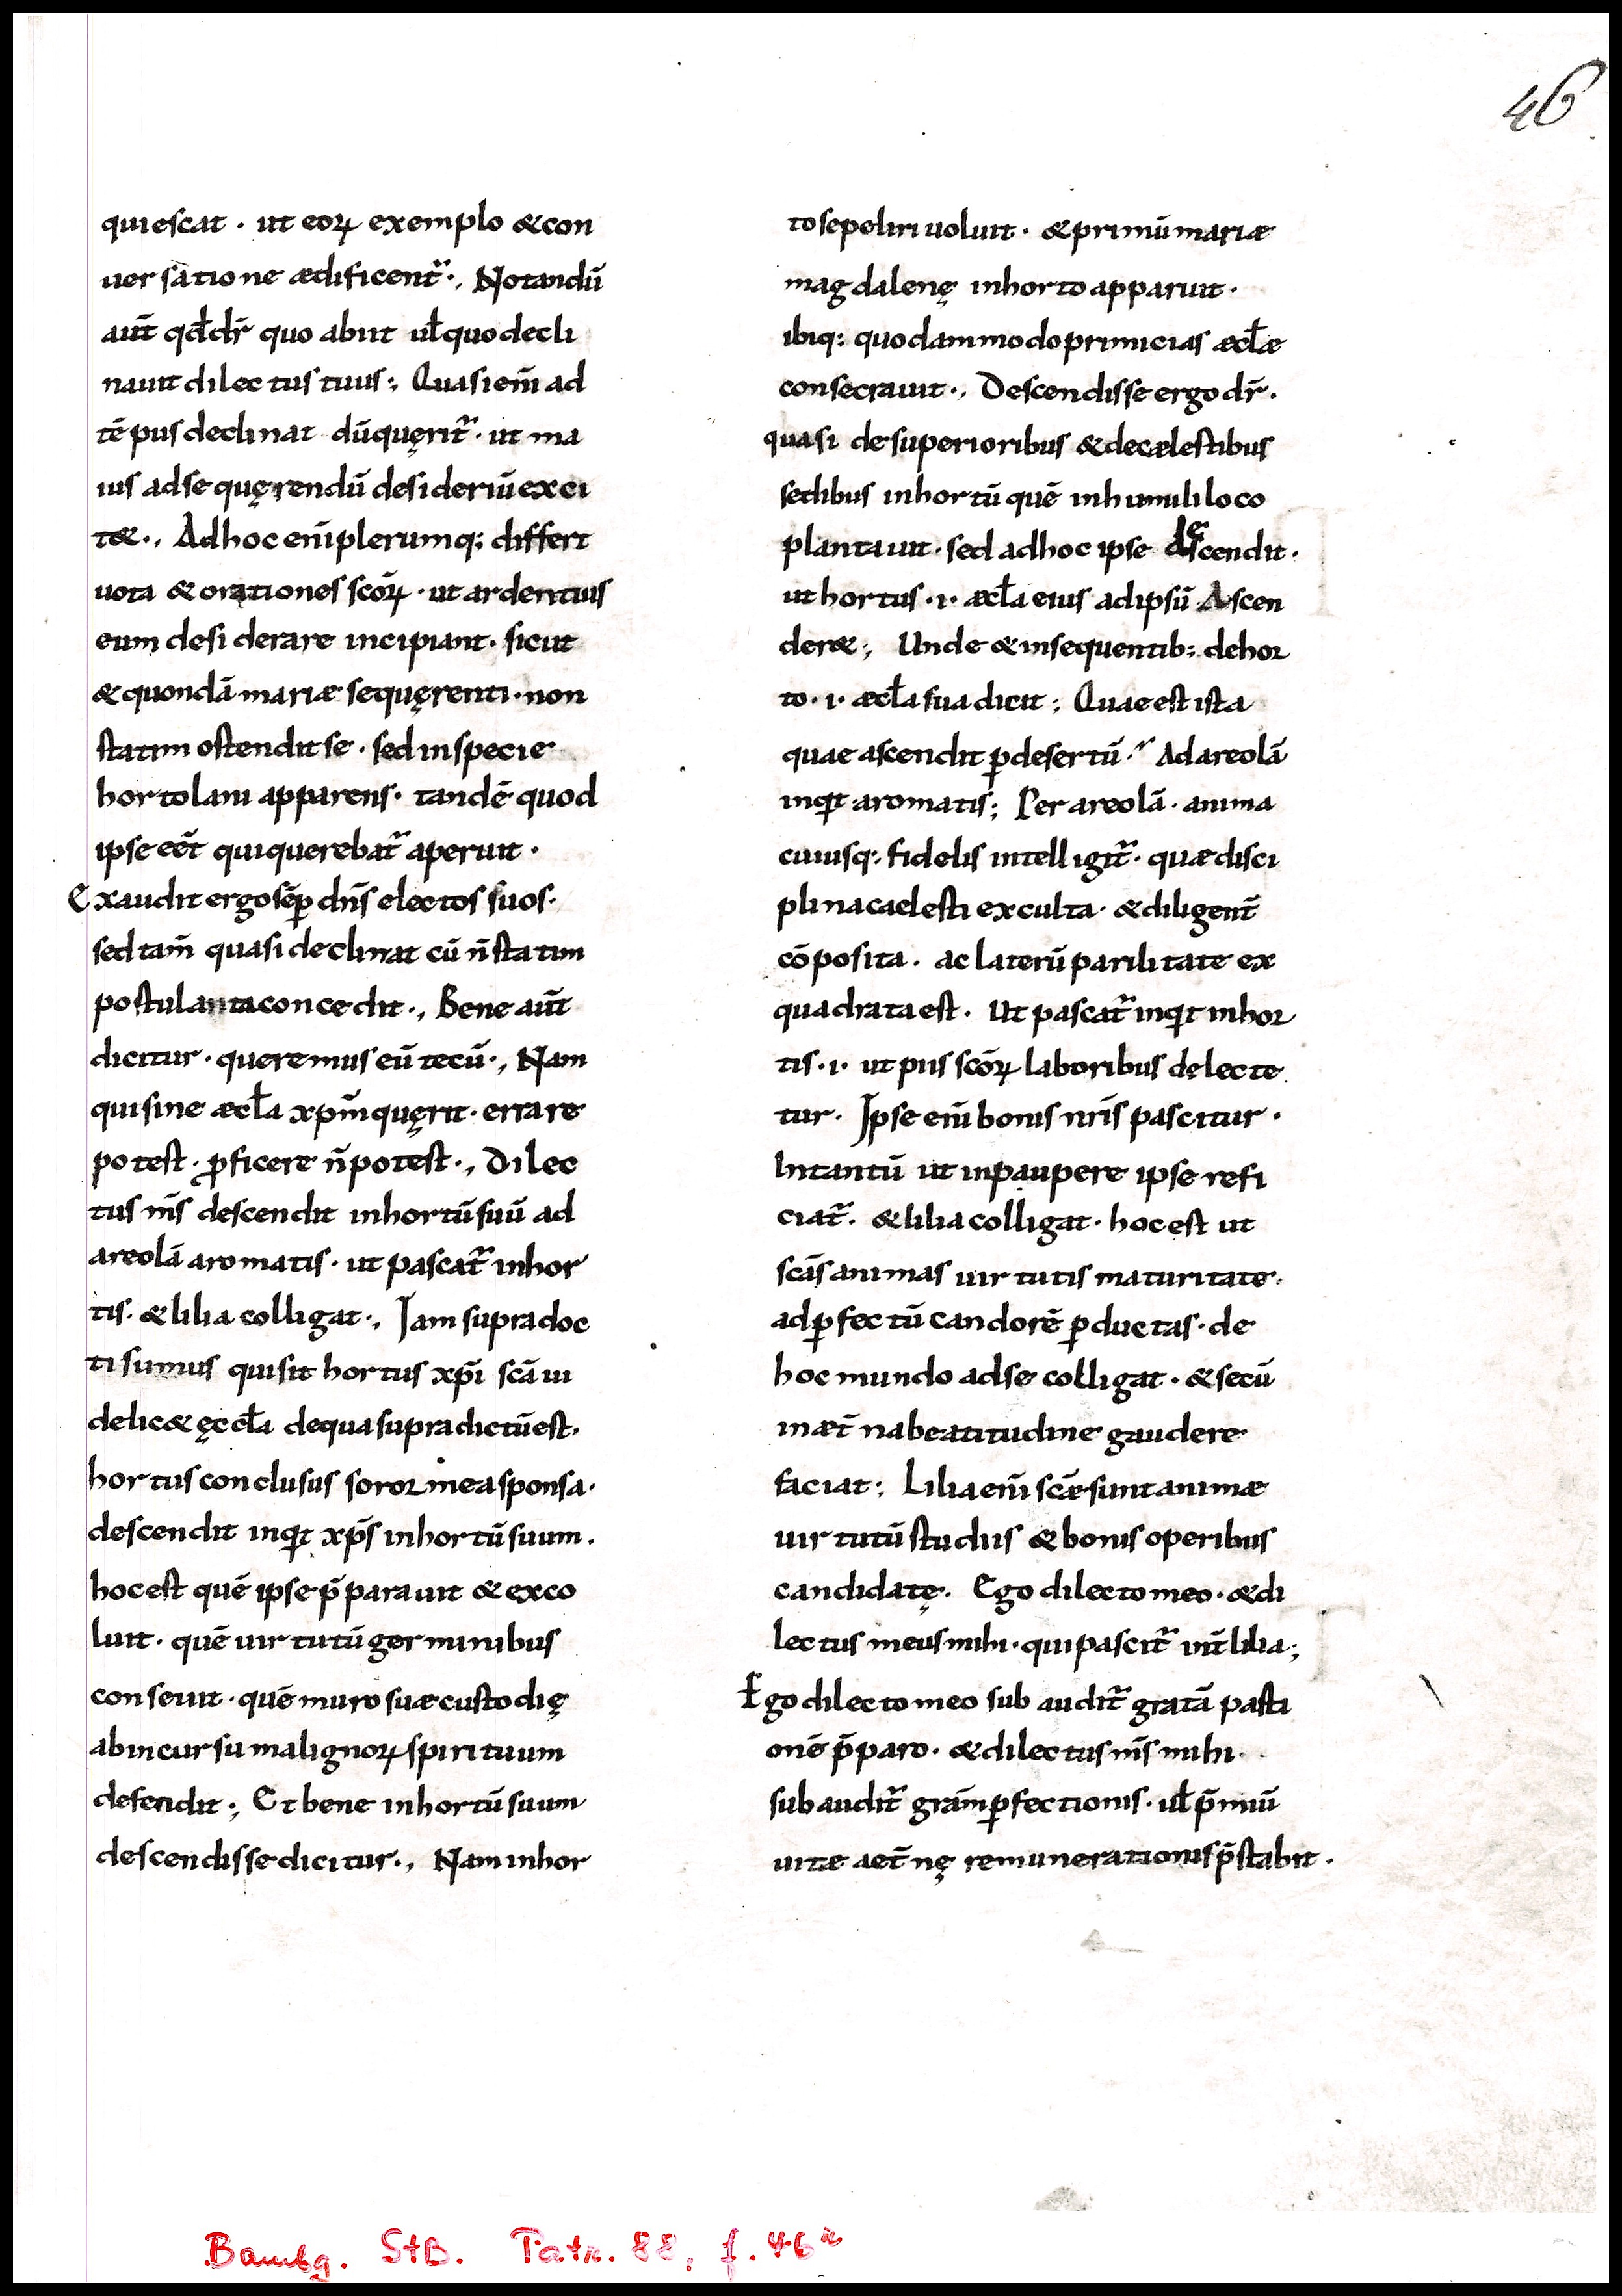 46
quiescat · ut eoꝝ exemplo &con
uersatione ædificent᷑ ·, Notandū
aut̄ qđ dr̄ quo abiit uł quo decli
nauit dilectus tuus ;, Quasi eni̅ ad
tēpus declinat dū quęrit᷑ · ut ma
ius ad se quęrendū desideriū exci
t& ·, Ad hoc eni̅ plerumq; differt
uota & orationes scōꝝ · ut ardentius
eum desiderare incipiant · sicut
& quondā mariæ se quęrenti · non
statim ostendit se · sed in specie
hortolani apparens · tandē quod
ipse eēt qui querebat᷑ aperuit ·
Exaudit ergo sēꝑ dn̄s electos suos ·
sed tam̄ quasi declinat cū n̄ statim
postulanta concedit ·, Bene aut̄
dicitur · queremus eū tecū ·, Nam
qui sine æcła xpm̄ quęrit · errare
potest · ꝓficere n̄ potest ·, Dilec
tus m̄s descendit in hortū suū ad
areolā aromatis · ut pascat᷑ in hor
tis · & lilia colligat ·, Iam supra doc
ti sumus qui sit hortus xp̄i scā ui
delic& ęccła de qua supra dictū est ·
hortus conclusus soror mea sponsa ·
descendit inqͥt xp̄s in hortū suum ·
hoc est quē ipse p̄parauit & exco
luit · quē uirtutū germinibus
conseuit · quē muro suæ custodię
ab incursu malignoꝝ spirituum
defendit ·; Et bene in hortū suum
descendisse dicitur ·, Nam in hor
to sepeliri uoluit · & primū mariæ
magdalenę in horto apparuit ·
ibiq; quodammodo primicias æcłæ
consecrauit ·, Descendisse ergo dr̄ ·
quasi de superioribus & de cælestibus
sedibus in hortū quē in humili loco
plantauit · sed ad hoc ipse descendit ·
ut hortus · i · æcła eius ad ipsū Ascen
der& ·; Unde & in sequentib; de hor
to · i · æcła sua dicit ; Quae est ista
quae ascendit ꝑ desertū ·᷎ Ad areolā
inqͥt aromatis ; Per areolā · anima
cuiusq; fidelis intelligit᷑ · quæ disci
plina caelesti exculta · & diligent̄
cōposita · ac laterū parilitate ex
quadrata est · Ut pascat᷑ inqͥt in hor
tis · i · ut piis scōꝝ laboribus delecte
tur · Ipse eni̅ bonis nr̄is pascitur ·
Intantū ut in paupere ipse refi
ciat᷑ · & lilia colligat · hoc est ut
scās animas uirtutis maturitate
ad ꝑfectū candorē ꝑductas · de
hoc mundo ad se colligat · & secū
in æt̄na beatitudine gaudere
faciat ; Lilia eni̅ scǣ sunt animæ
uirtutū studiis & bonis operibus
candidatę · Ego dilecto meo · & di
lectus meus mihi · qui pascit᷑ int̄ lilia ;
Ego dilecto meo sub audit᷑ gratā pasti
onē p̄paro · & dilectus m̄s mihi ·
sub audit᷑ grām ꝑfectionis · uł p̄miū
uitæ aet̄nę remunerationis p̄stabit ·
Bambg. StB. Patr. 88, f. 46ʳ